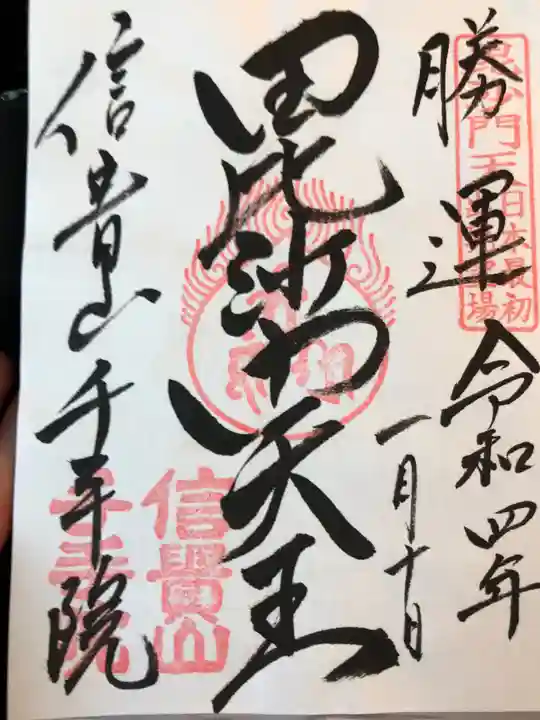 勝運
令和四年
一月十日
毘沙門天王
信貴山千手院
毘沙門天王
日本最初
信貴山
千手院